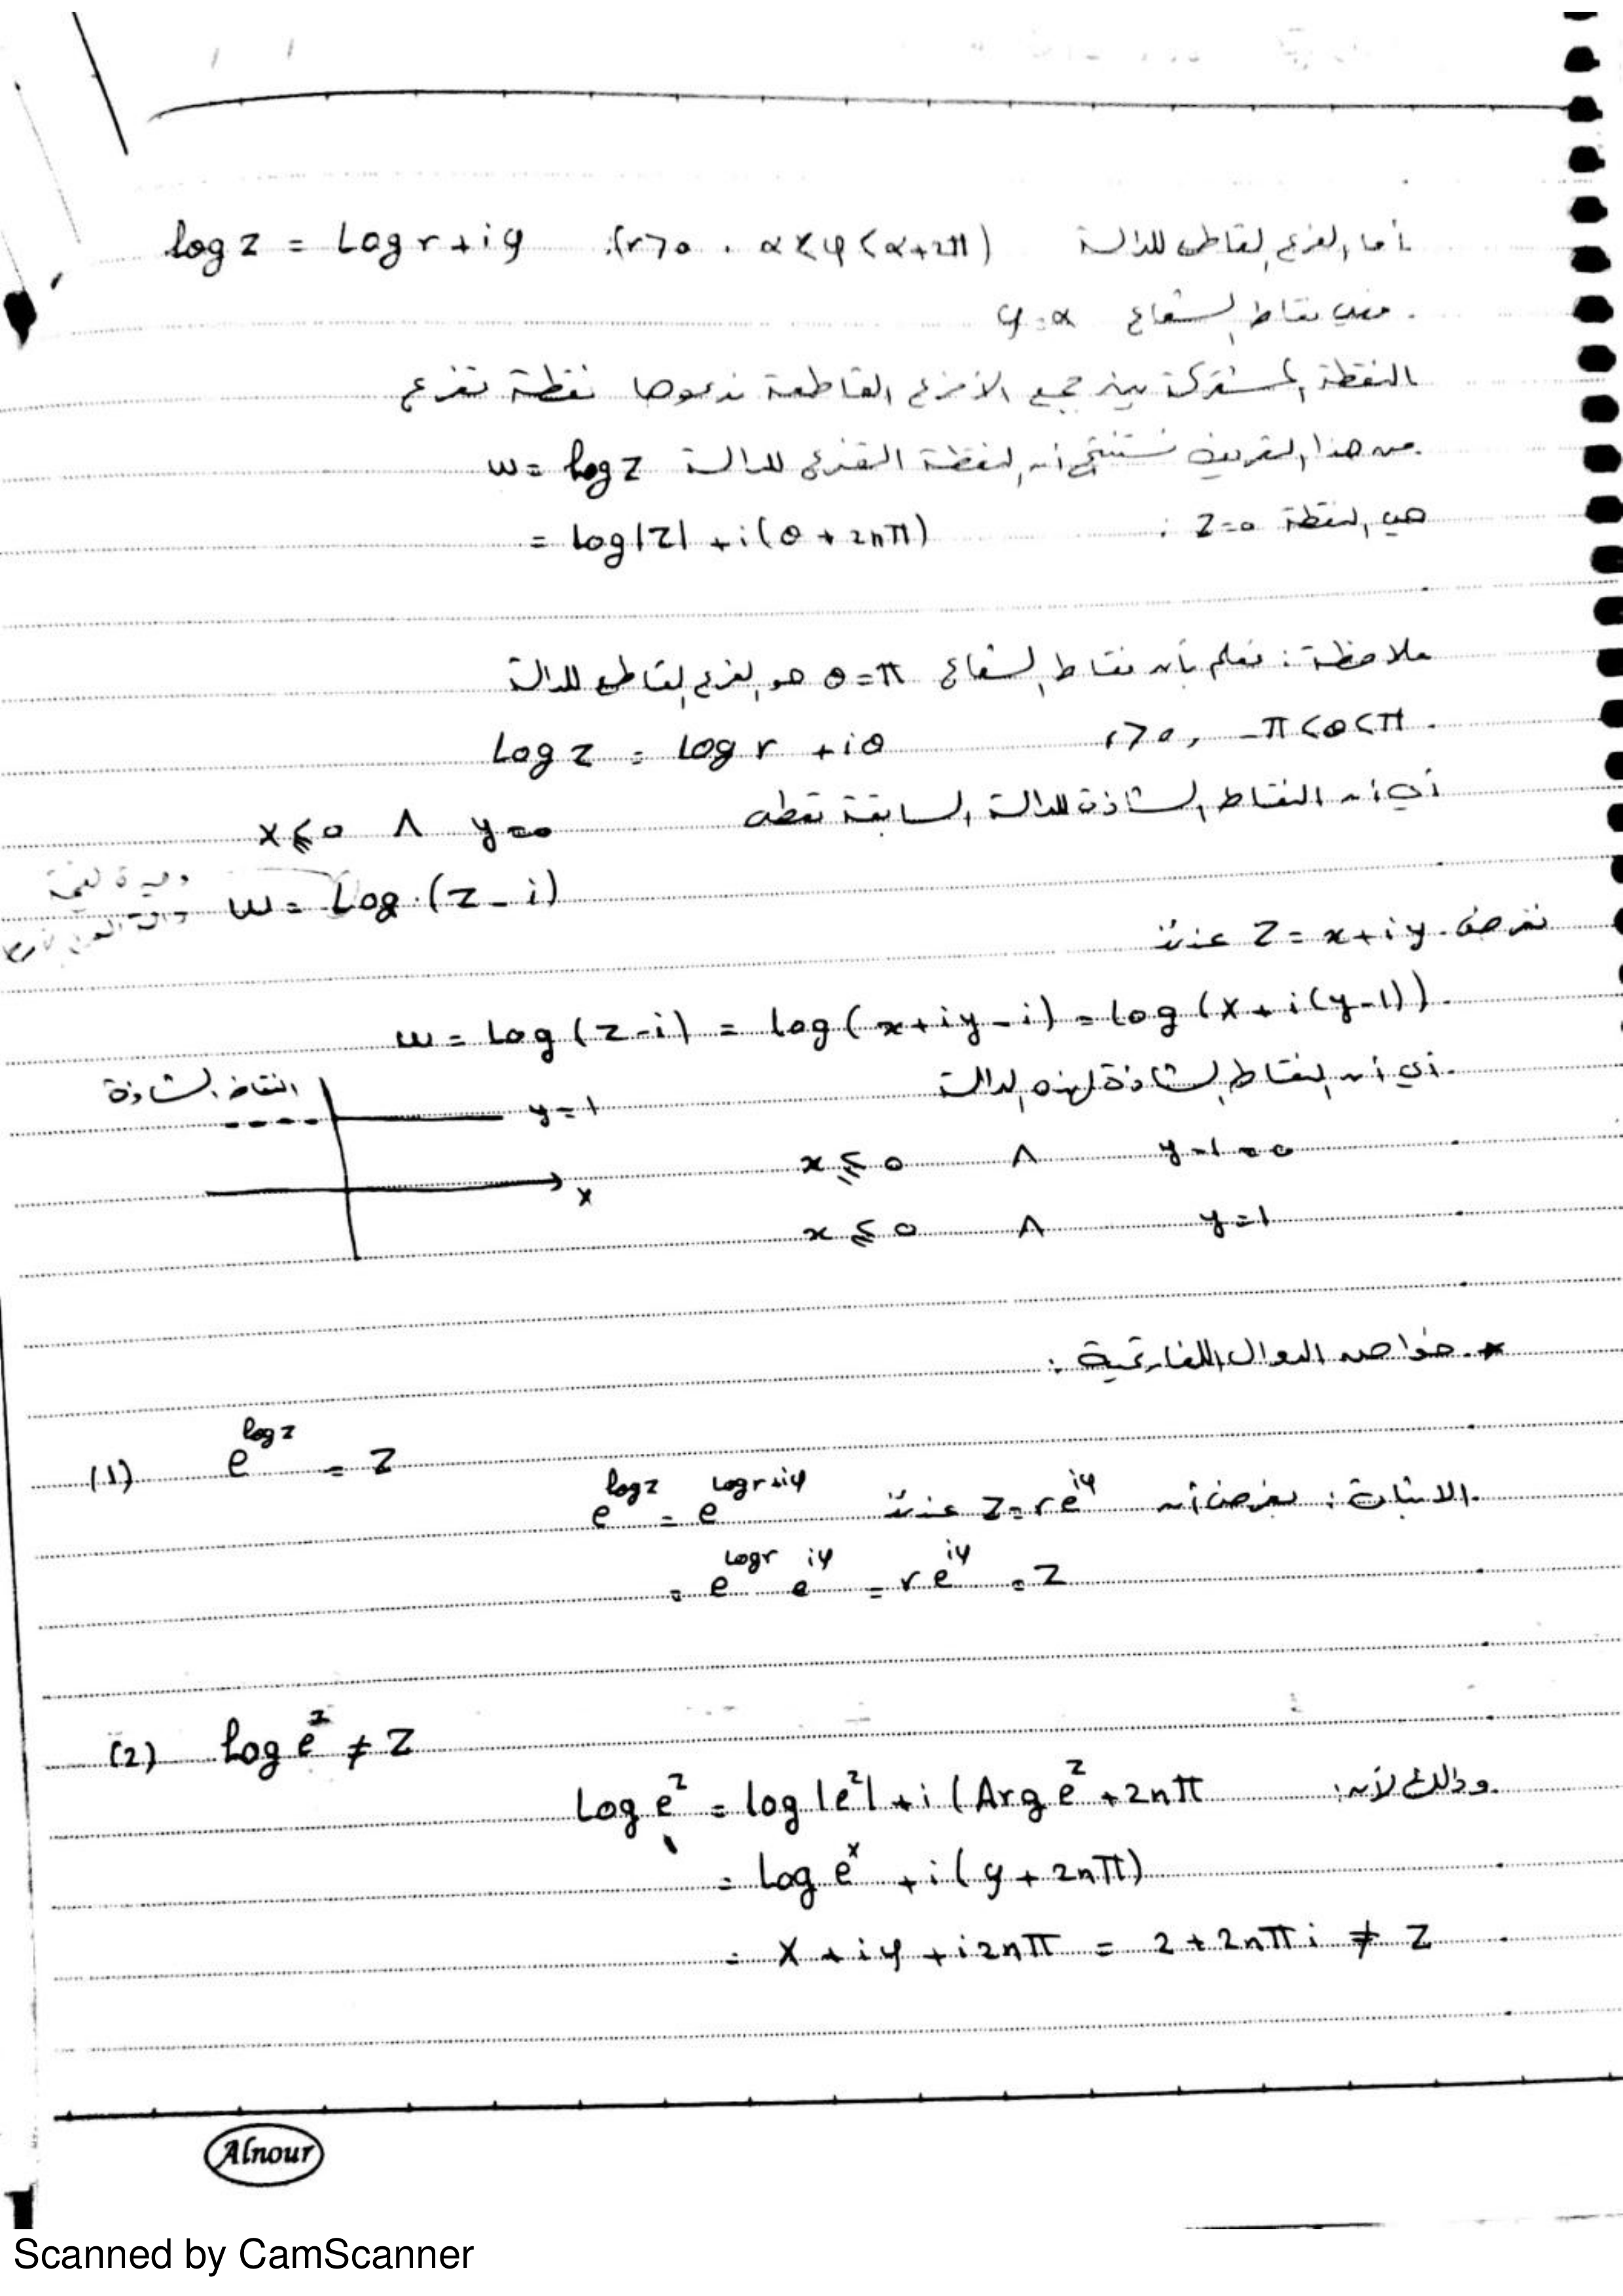 أما الفرع القاطع للدالة log z = Log r + iφ (r>0 . α<φ<α+2π)
فهي نقاط الشعاع φ=α
النقطة المشتركة بين جميع الأفرع القاطعة ندعوها نقطة تفرع
من هذا التعريف نستنتج أن نقطة التفرع للدالة w = log z
هي النقطة z=0 : = log|z| + i(θ + 2nπ)
ملاحظة: نعلم بأن نقاط الشعاع θ=π هو الفرع القاطع للدالة
Log z = Log r + iθ r>0, -π<θ<π.
أي أن النقاط الشاذة للدالة السابقة تعطى x≤0 ∧ y=0
w = Log (z - i)
نفرض z = x+iy عندئذ
w = Log (z-i) = log(x+iy-i) = Log (x + i(y-1))
أي أن النقاط الشاذة لهذه الدالة
النقاط الشاذة
y=1
x
x ≤ 0 ∧ y-1=0
x ≤ 0 ∧ y=1
* خواص الدوال اللغارتمية :
(1) e^{log z} = z
الاثبات: بفرض أن z = re^{iφ} عندئذ e^{log z} = e^{Log r+iφ}
= e^{Log r} e^{iφ} = r e^{iφ} = z
(2) log e^z ≠ z
وذلك لأن: Log e^z = log |e^z| + i (Arg e^z + 2nπ
= Log e^x + i(y + 2nπ)
= x + iy + i2nπ = z + 2nπi ≠ z
Alnour
Scanned by CamScanner